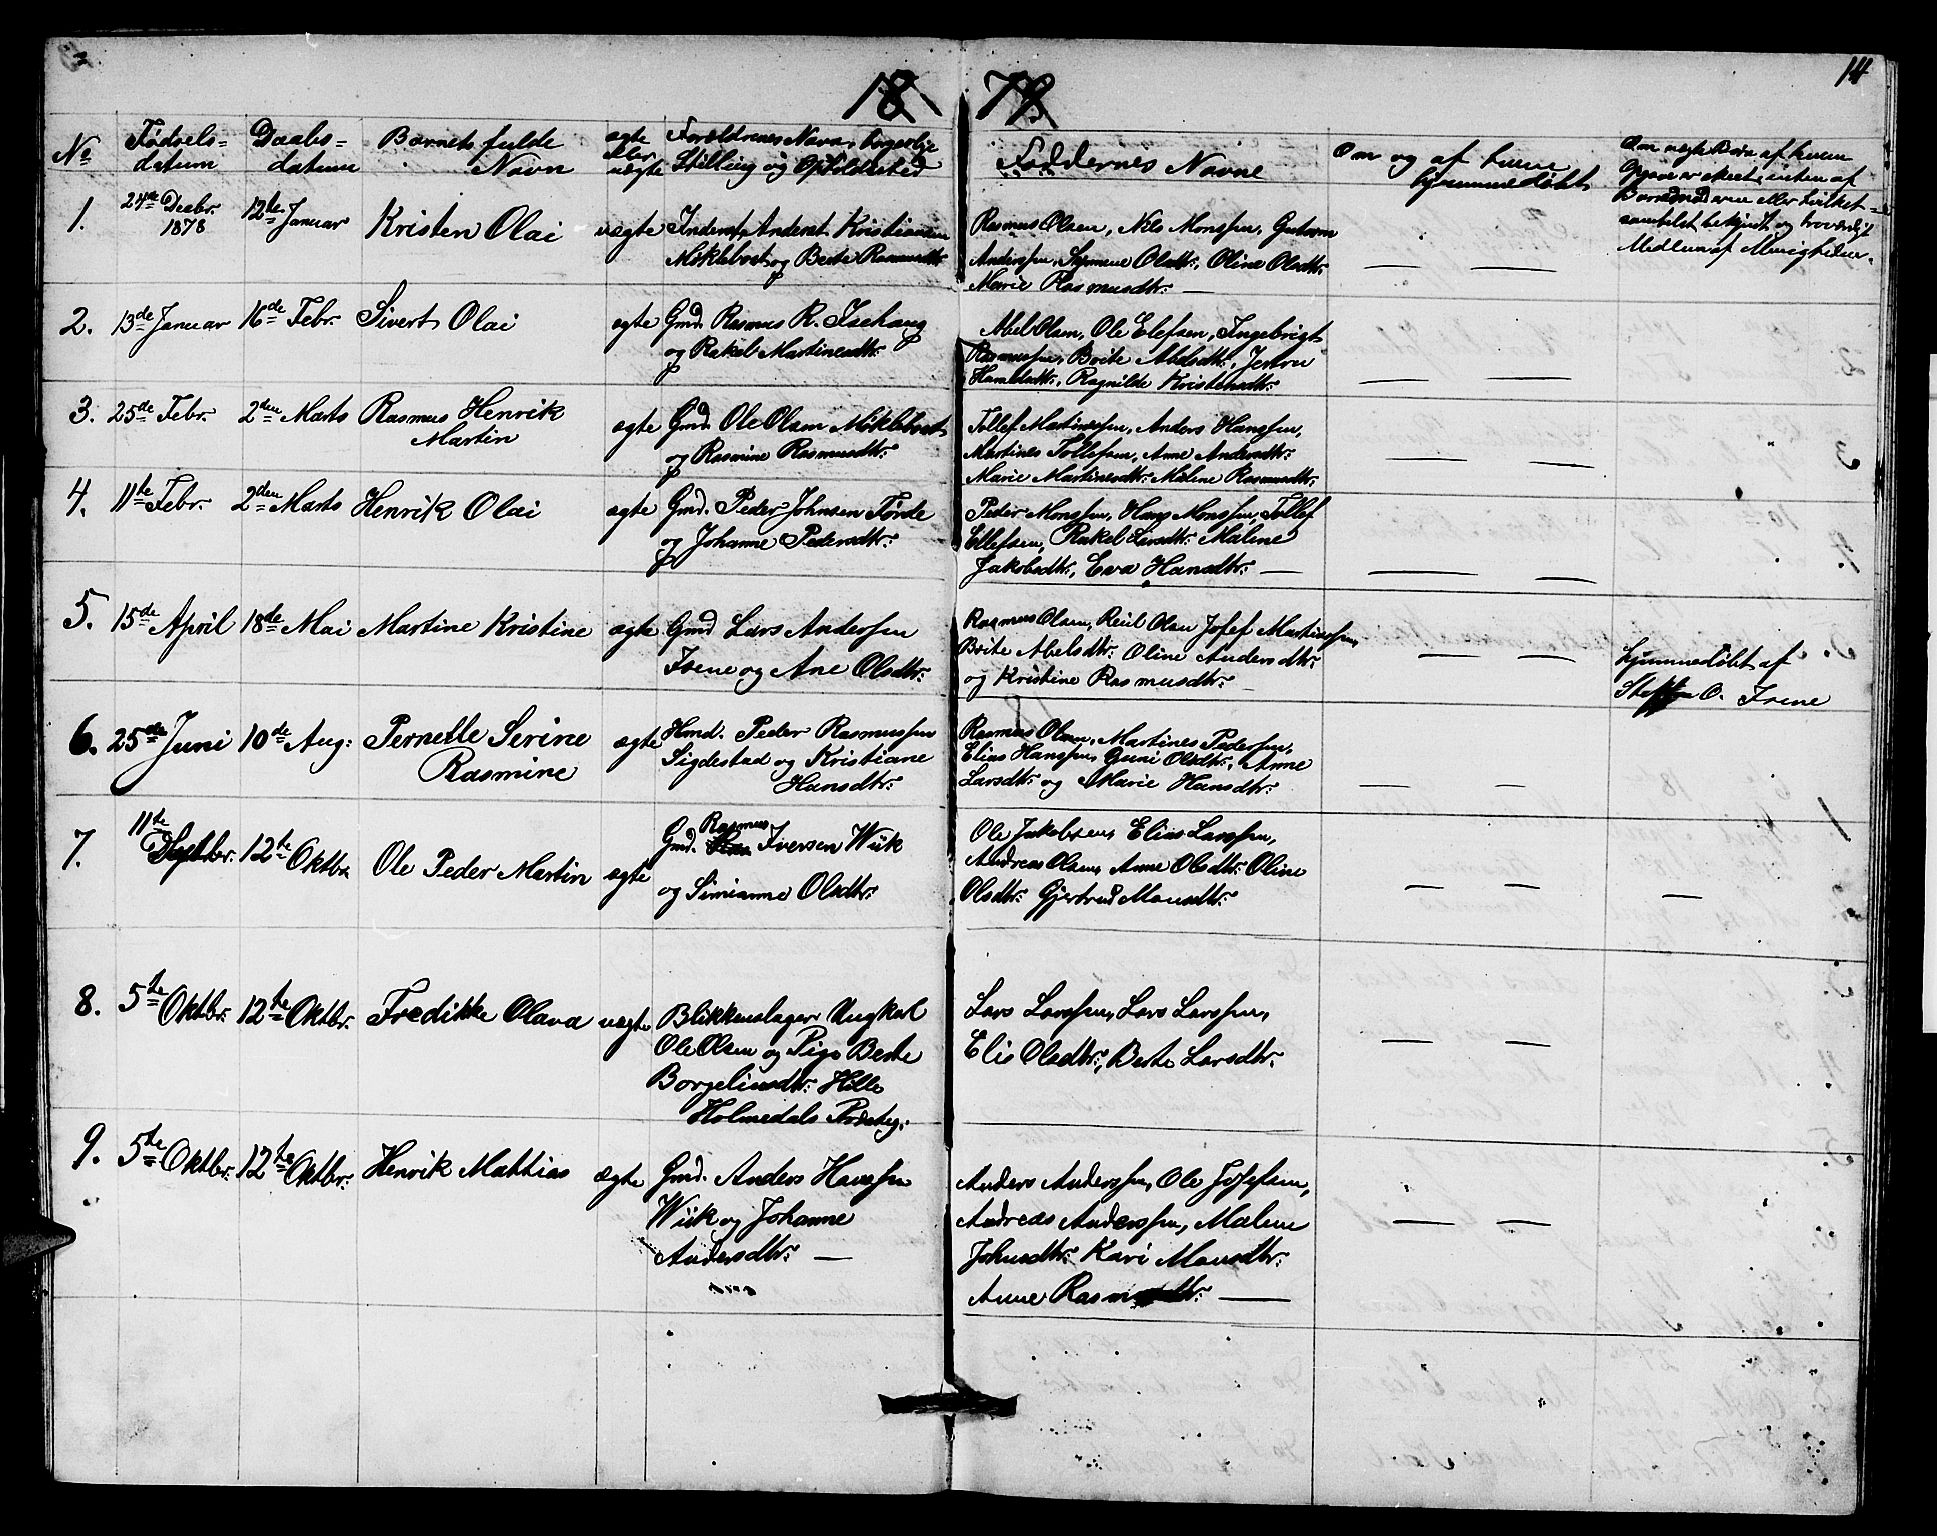 14
18 79
No
Fødsels-
datum
Daabs-
datum
Barnets fulde
Navn
ægte
eller
uægte
Forældrenes Navn, borgerlige
Stilling og Opholdssted
Faddernes Navne
Om og af hvem
hjemmedøbt
Om uægte Børn af hvem
Opgave er skeet, enten af
Barnemoderen eller hvilket-
somhelst bekjendt og troværdigt
Medlem af Menigheden.
1.
24de Decbr.
1878
12te Januar
Kristen Olai
uægte
Inderst Anderst Kristiansen
Mikleboet og Berte Rasmusdtr.
Rasmus Olsen, Nils Monssen, Guttorm
Anderssen, Symene Olsdtr, Oline Olsdtr.
Marie Rasmusdtr. —
— —
2.
13de Januar
16de Febr.
Sivert Olai
ægte
Gmd. Rasmus R. Isehaug
og Rakel Martinesdtr.
Abel Olsen, Ole Elefsen, Ingebrigt
Rasmussen, Brite Abelsdtr., Jenne
Hansdtr., Ragnilde Kristensdtr.
— —
3.
25de Febr.
2den Marts
Rasmus Henrik
Martin
ægte
Gmd. Ole Olsen Mikleboet
og Rasmine Rasmusdtr.
Tollef Martinessen, Anders Hanssen,
Martines Tollefsen, Anne Andersdtr.
Marie Martinesdtr. Malene Rasmusdtr.
— —
4.
11te Febr.
2den Marts
Henrik Olai
ægte
Gmd. Peder Johnsen Førde
og Johanne Pedersdtr.
Peder Monssen, Hans Monssen, Tollef
Ellefsen, Rakel Larsdtr. Malene
Jakobsdtr, Eva Hansdtr. —
— —
5.
15de April
18de Mai
Martine Kristine
ægte
Gmd Lars Anderssen
Isene og Ane Olsdtr.
Rasmus Olsen, Reiel Olsen Josef Martinessen,
Brite Abelsdtr. Oline Andersdtr.
og Kristine Rasmusdtr.
— —
hjemmedøbt af
Steffen O. Isene
6.
25de Juni
10de Aug:
Pernelle Serine
Rasmine
ægte
Hmd. Peder Rasmussen
Sigdestad og Kristiane
Hansdtr.
Rasmus Olsen, Martines Pedersen,
Elias Hanssen, Guni Olsdtr., Anne
Larsdtr. og Marie Hansdtr.
— —
7.
11te
Septbr.
12te Oktbr.
Ole Peder Martin
ægte
Rasmus
Gmd. Iversen Wiik
og Simianne Olsdtr.
Ole Jakobsen, Elias Larssen,
Andreas Olsen, Anne Olsdtr. Oline
Olsdtr. Gjertrud Monsdtr.
— — —
8.
5te Oktbr.
12te Oktbr.
Fredikke Olava
uægte
Blikkenslager Ungkarl
Ole Olsen og Pige Berte
Borgelinsdtr. Hille
Holmedals Præsteg.
Lars Larssen, Lars Larssen,
Elis Olsdtr., Berte Larsdtr.
— —
9.
5te Oktbr.
12te Oktbr.
Henrik Mattias
ægte
Gmd. Anders Hanssen
Wiik og Johanne
Andersdtr. —
Anders Anderssen, Ole Josefsen,
Andreas Anderssen, Malene
Johnsdtr. Kari Monsdtr.
Anne Rasmusdtr. —
— —